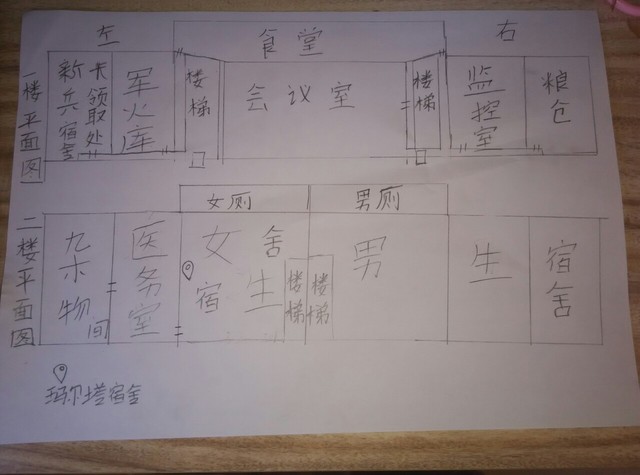 左
食堂
右
一楼平面图
新兵宿舍
卡领取处
军火库
楼梯
会议室
楼梯
监控室
粮仓
女厕
男厕
二楼平面图
医务室
女生宿舍
楼梯
楼梯
男生宿舍
玛尔塔宿舍